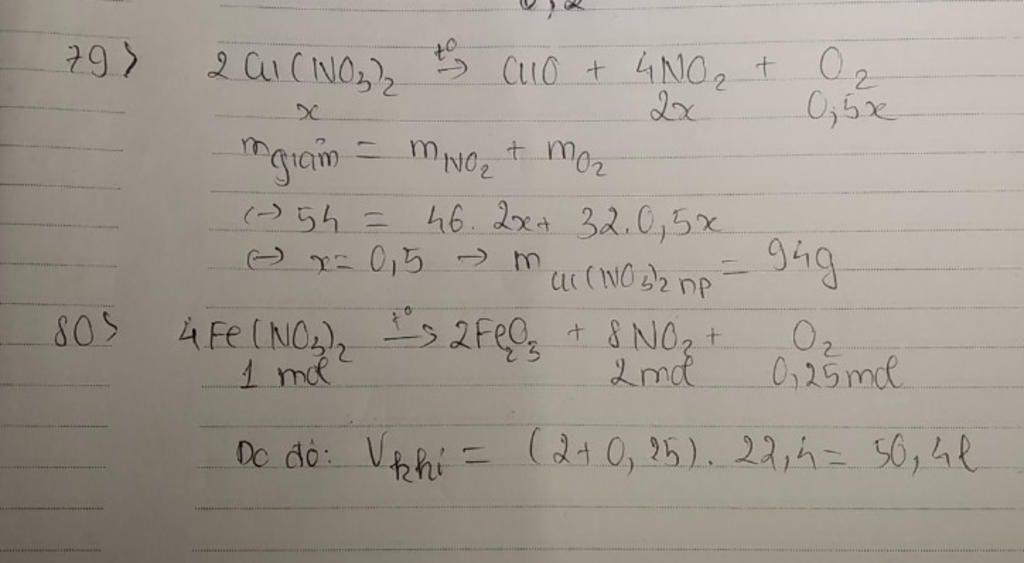 79> 2Cu(NO3)2 t° → CuO + 4NO2 + O2
x 2x 0,5x
mgiảm = mNO2 + mO2
(→ 54 = 46. 2x + 32.0,5x
(→ x = 0,5 → mCu(NO3)2 np = 94g
80> 4Fe(NO3)2 t° → 2Fe2O3 + 8NO2 + O2
1 mol 2mol 0,25mol
Do đó: Vkhí = (2+0,25). 22,4 = 50,4l